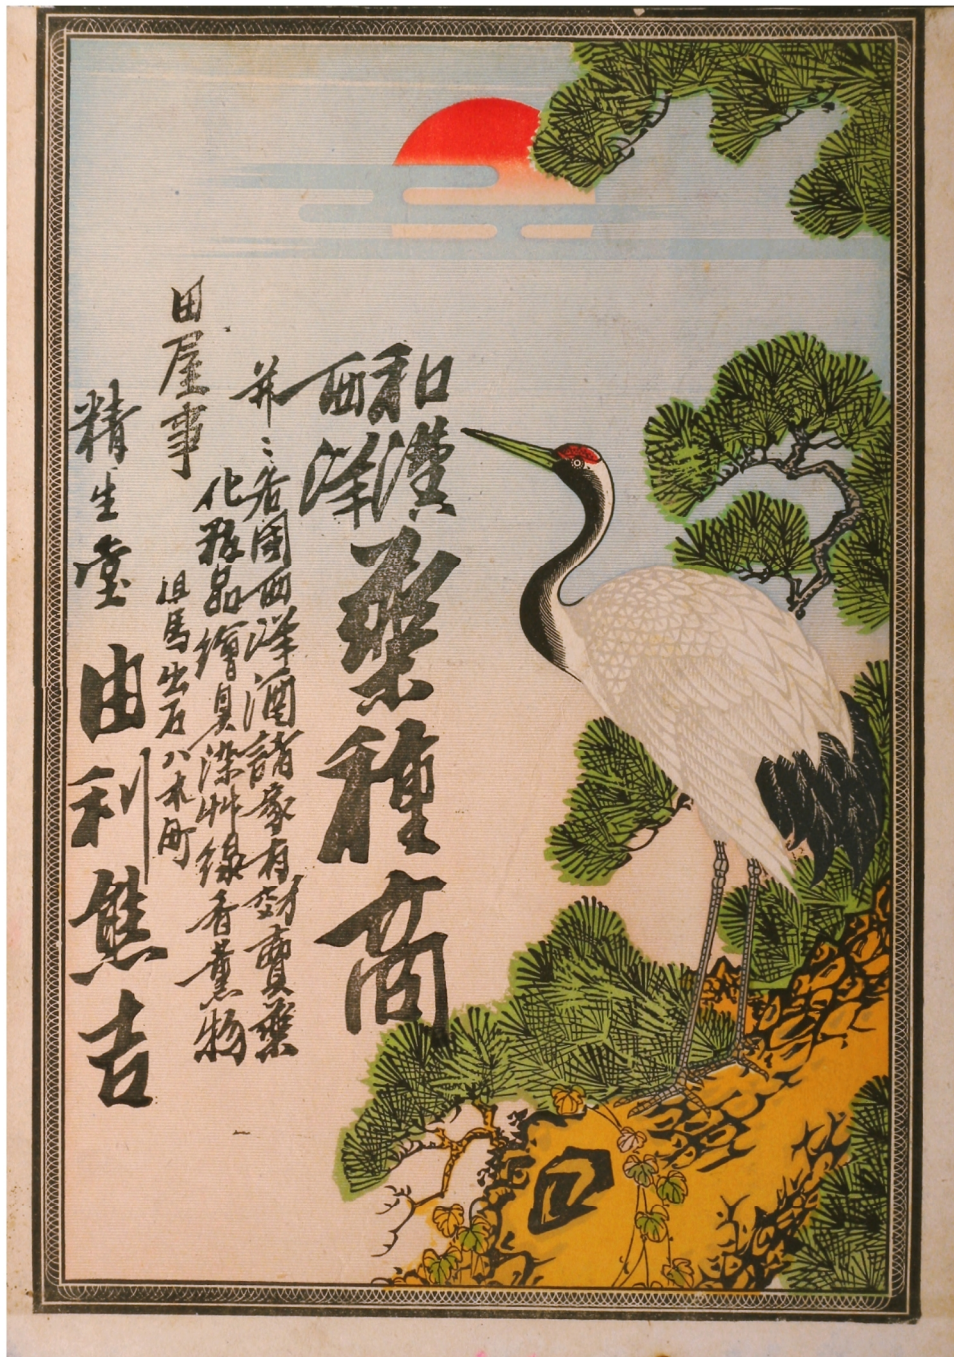 和漢
西洋
藥種商
并ニ各國西洋酒諸家有効賣藥
化粧品繪具染艸線香薫物
田屋事
但馬出石八木町
精生堂 由利熊吉